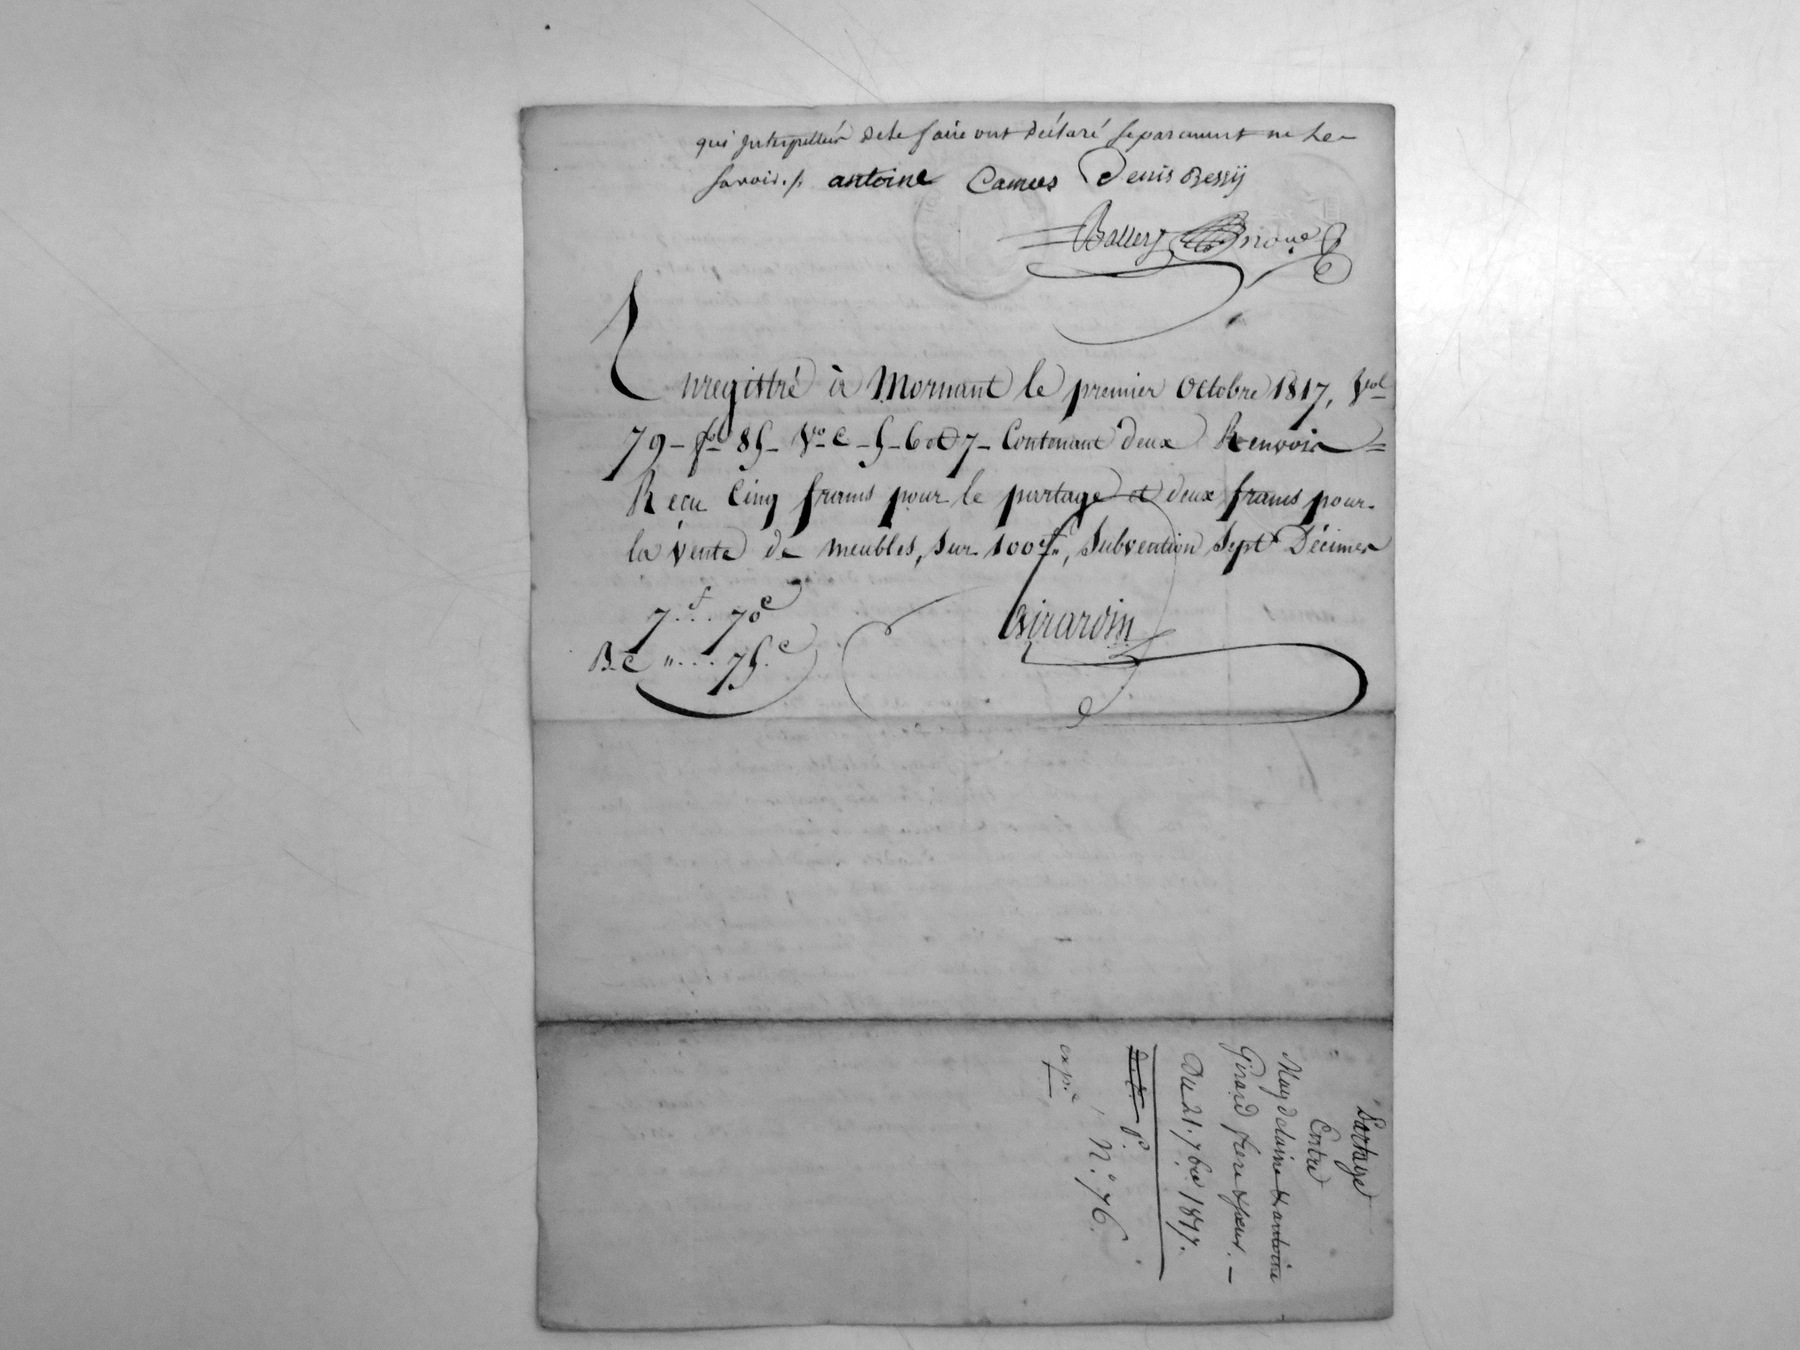 qui interpellés de le faire ont déclaré séparément ne le
savoir ./. antoine Camus Denis Bessÿ
Ballery
Enregistré à Mornant le premier Octobre 1817, Vol
79 - fol 85 - Vo C - 5 - 6 et 7 - Contenant deux Renvois =
Recu Cinq francs pour le partage et deux francs pour
la vente de meubles, sur 100 f, Subvention Sept Décimes
7 f ... 70 c
B. C " .... 75. c
Girardin
Partage
Entre
Magdelaine & antoine
Girard frere & sœur. -
Du 21. 7bre 1817.
P.
N.° 76.
expé